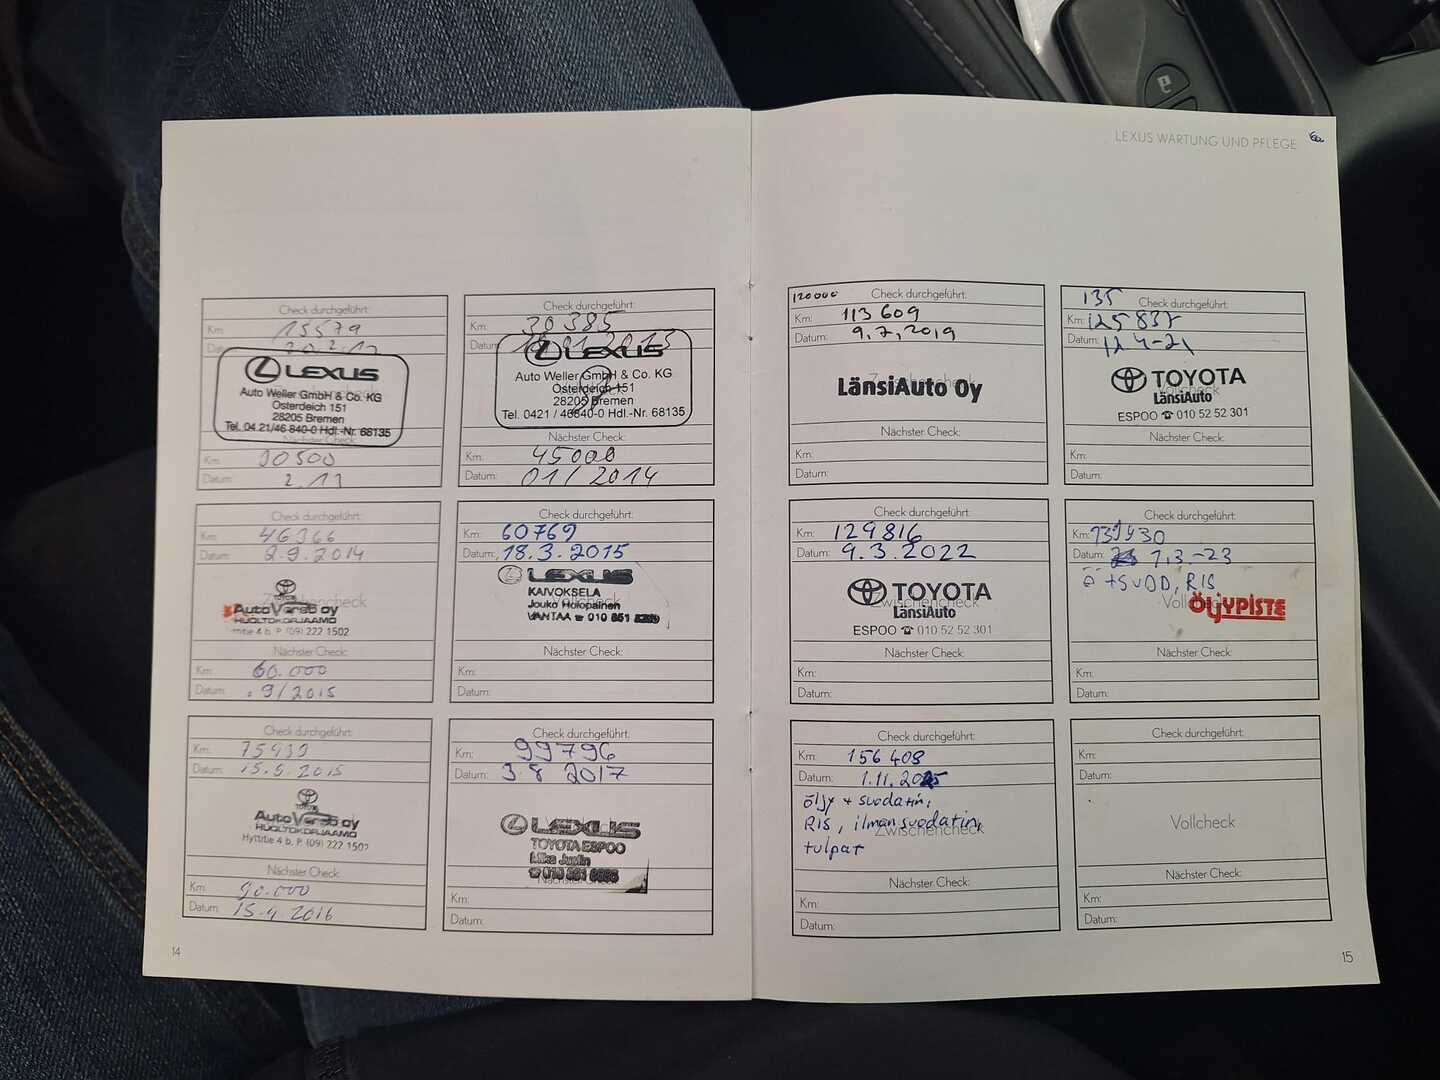 LEXUS WARTUNG UND PFLEGE
Check durchgeführt:
Km: 15579
Datum: 20.2.12
LEXUS
Auto Weller GmbH & Co. KG
Osterdeich 151
28205 Bremen
Tel. 04 21/46 840-0 Hdl.-Nr. 68135
Nächster Check:
Km: 30500
Datum: 2.13
Check durchgeführt:
Km: 30385
LEXUS
Auto Weller GmbH & Co. KG
Osterdeich 151
28205 Bremen
Tel. 0421 / 46840-0 Hdl.-Nr. 68135
Nächster Check:
Km: 45000
Datum: 01/2014
Check durchgeführt:
Km: 46366
Datum: 2.9.2014
TOYOTA
AutoVerso oy
Zwischencheck
HUOLTOKORJAAMO
P. (09) 222 1502
Nächster Check:
Km: 60.000
Datum: 9/2015
Check durchgeführt:
Km: 60769
Datum: 18.3.2015
LEXUS
KAIVOKSELA
Jouko Holopainen
VANTAA ☎ 010 851
Nächster Check:
Km:
Datum:
Check durchgeführt:
Km: 75939
Datum: 15.9.2015
TOYOTA
AutoVerso oy
HUOLTOKORJAAMO
Hyttitie 4 b, P. (09) 222 1502
Nächster Check:
Km: 90.000
Datum: 15.9.2016
Check durchgeführt:
Km: 99796
Datum: 3.8 2017
LEXUS
TOYOTA ESPOO
Mika Justin
Nächster Check:
Km:
Datum:
14
120000 Check durchgeführt:
Km: 113609
Datum: 9.7.2019
Zwischencheck
LänsiAuto Oy
Nächster Check:
Km:
Datum:
135 Check durchgeführt:
Km: 125837
Datum: 12.4-21
TOYOTA
Vollcheck
LänsiAuto
ESPOO ☎ 010 52 52 301
Nächster Check:
Km:
Datum:
Check durchgeführt:
Km: 129816
Datum: 9.3.2022
TOYOTA
Zwischencheck
LänsiAuto
ESPOO ☎ 010 52 52 301
Nächster Check:
Km:
Datum:
Check durchgeführt:
Km: 139430
Datum: 7.3.-23
Ö + SUOD, RIS
Vollcheck
ÖLJYPISTE
Nächster Check:
Km:
Datum:
Check durchgeführt:
Km: 156408
Datum: 1.11.2025
öljy + suodatin,
RIS, ilmansuodatin,
Zwischencheck
tulpat
Nächster Check:
Km:
Datum:
Check durchgeführt:
Km:
Datum:
Vollcheck
Nächster Check:
Km:
Datum:
15